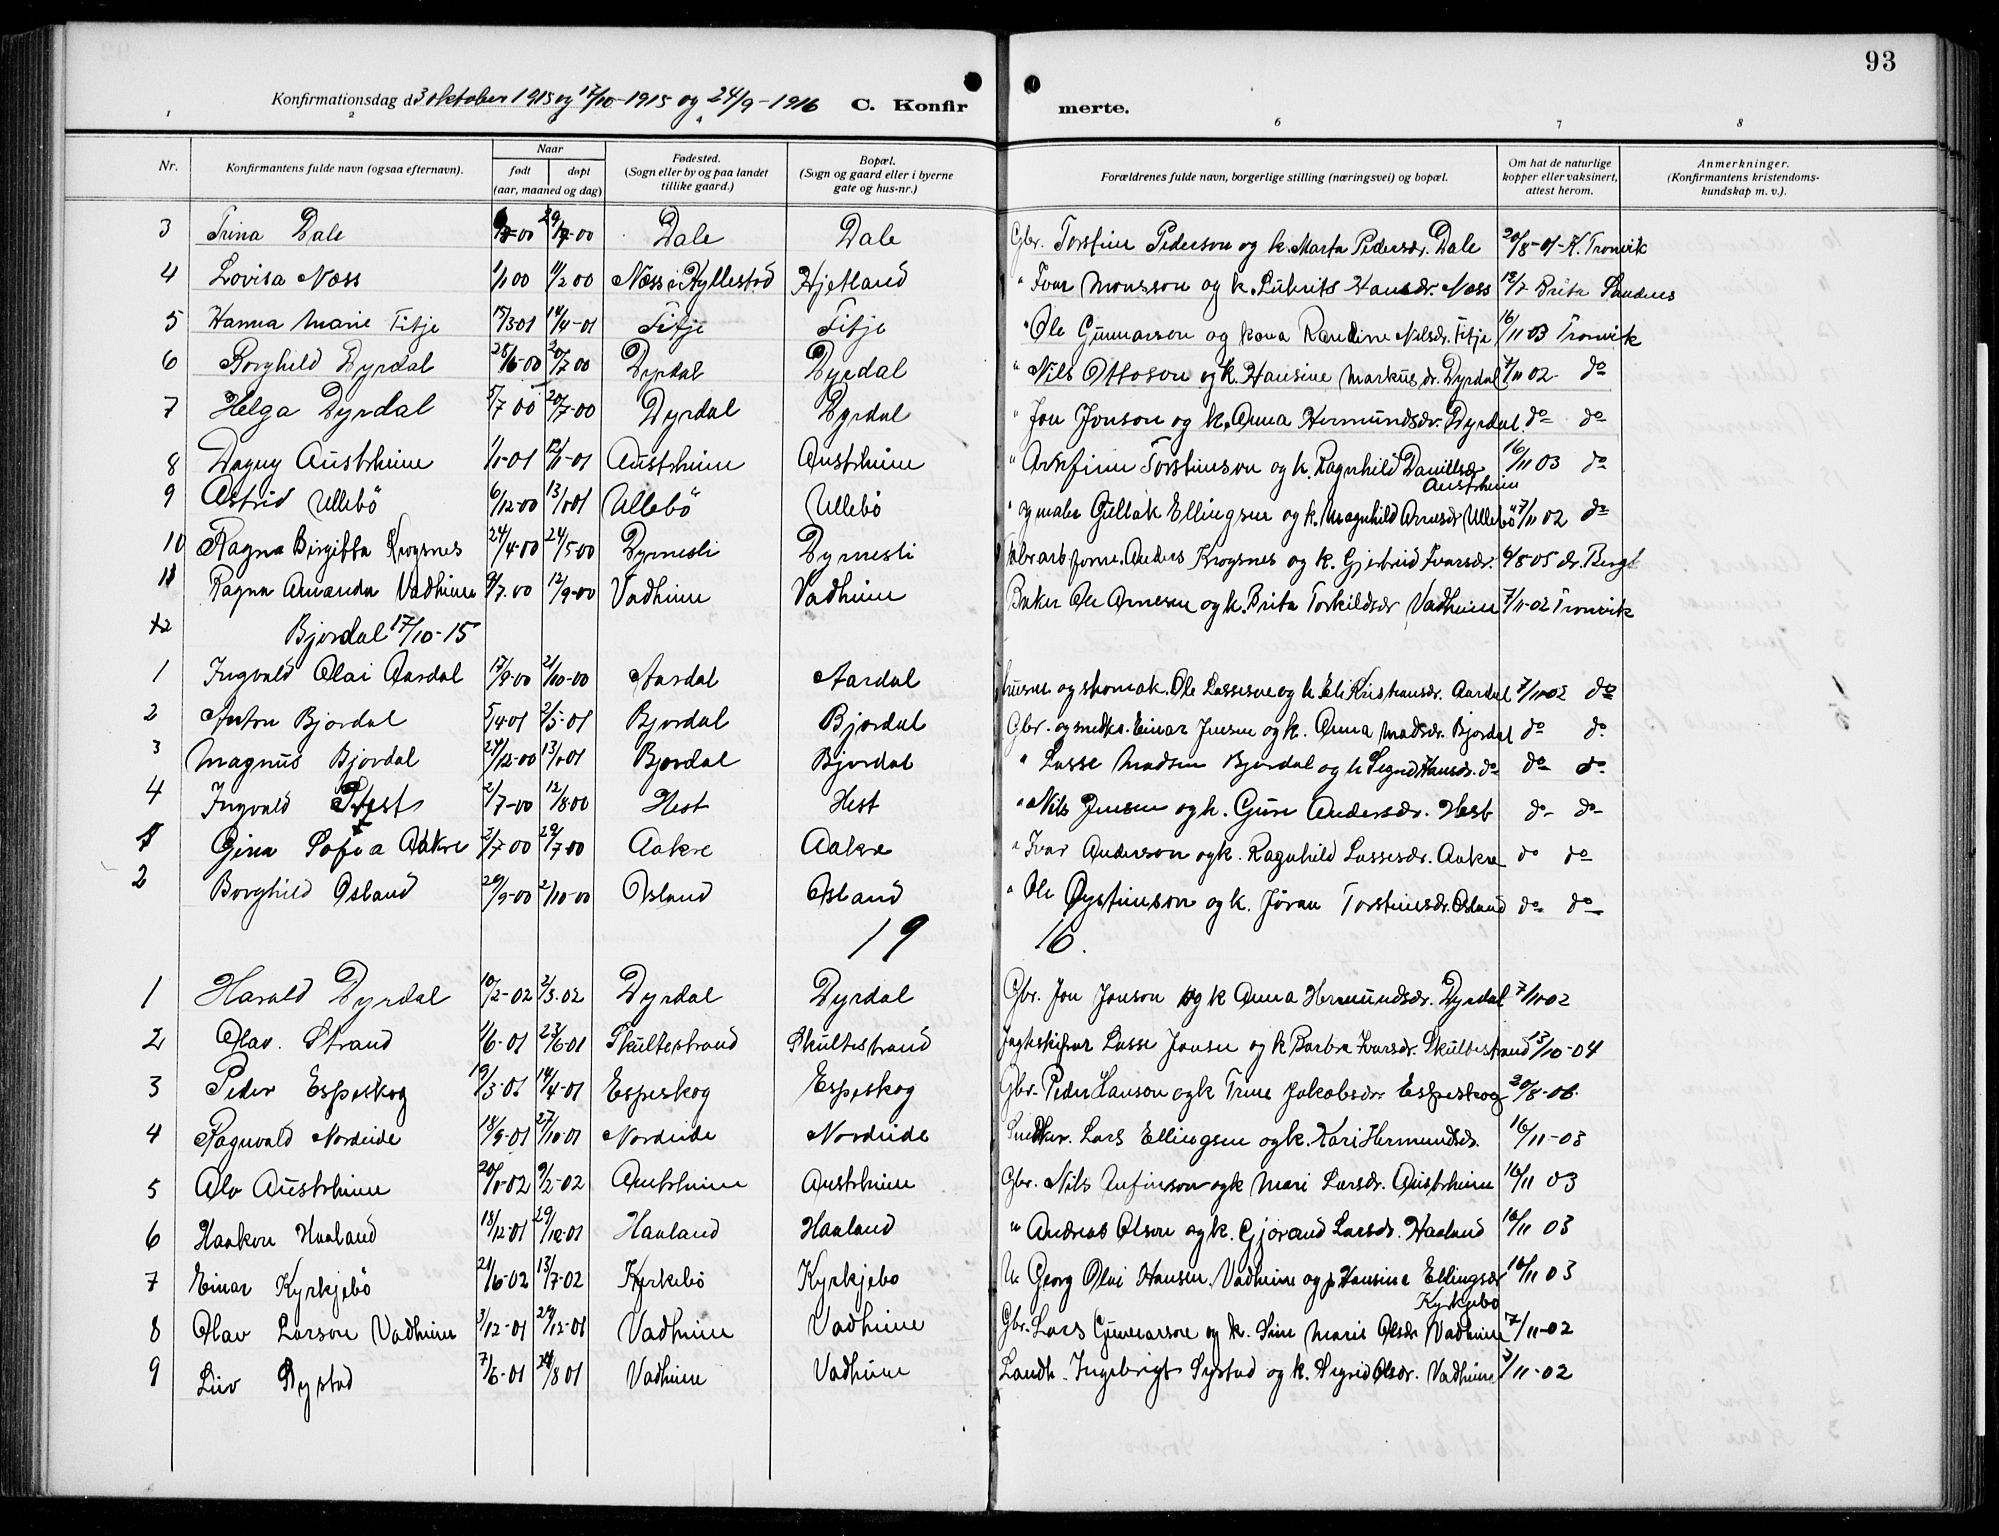 93
Konfirmationsdag d 3 oktober 1915 og 17/10-1915 og 24/9-1916 C. Konfir merte.
1 2 4 6 7 8
Nr. Konfirmantens fulde navn (ogsaa efternavn). Naar født døpt (aar, maaned og dag) Fødested. (Sogn eller by og paa landet tillike gaard.) Bopæl. (Sogn og gaard eller i byerne gate og hus-nr.) Forældrenes fulde navn, borgerlige stilling (næringsvei) og bopæl. Om hat de naturlige kopper eller vaksinert, attest herom. Anmerkninger. (Konfirmantens kristendoms-kundskap m. v.).
3 Trina Dale Dale Dale Gbr. Torstein Pederson og k. Marta Pedersdr. Dale 20/8-01 K. Tronvik
4 Lovisa Næss 1/1 00 11/2 00 Næss i Hyllestad Hjetland " Ivar Monsson og k. Hansdr. Næss Brita
5 Hanna Marie Fitje 15/3 01 14/4-01 Fitje Fitje " Ole Gunnarson og kona Randine Nilsdr. Fitje 16/11 03 Tronvik
6 Borghild Dyrdal 28/6-00 20/7 00 Dyrdal Dyrdal " Nils Ottoson og k. Hansine Markusdr. Dyrdal 7/11 02 do
7 Helga Dyrdal 5/7 00 20/7-00 Dyrdal Dyrdal " Jon Jonson og k. Anna Hermundsdr. Dyrdal. do do
8 Dagny Austrheim 1/1-01 12/1-01 Austrheim Austrheim " Arnfinn Torsteinson og k. Ragnhild Danielsdr. Austrheim 16/11 03 do
9 Astrid Ullebö 6/12-00 13/1-01 Ullebö Ullebö " og maler Gullak Ellingsen og k. Magnhild Arnesdr. Ullebö 7/11 02 do
10 Ragna Birgitta Krogsnes 24/4-00 24/5-00 Dyrnesli Dyrnesli forne. Anders Krogsnes og k. Gjertrud Ivarsdr. 6/8 05 dr. Bergh
11 Ragna Amanda Vadheim 9/7.00 12/9-00 Vadheim Vadheim Baker Ole Arnesen og k. Brita Torkildsdr. Vadheim 7/11-02 Tronvik
12 Bjordal 17/10-15
1 Ingvald Olai Aardal 17/9-00 21/10-00 Aardal Aardal Husm og skomak. Ole Lassesen og k. Eli Kristiansdr. Aardal 7/11 02 do
2 Anton Bjordal 5/4 01 2/5-01 Bjordal Bjordal Gbr. og snedk. Einar Jensen og k. Anna Madsdr. Bjordal do do.
3 Magnus Bjordal 27/12-00 13/1-01 Bjordal Bjordal " Lasse Madsen Bjordal og k Sigrid Hansdr. do do do.
4 Ingvald Hest 2/7-00 12/8-00 Hest Hest " Nils Jensen og k. Guri Andersdr. Hest do- do-
1 Gina Sofia Aakre 2/7-00 29/7-00 Aakre Aakre " Ivar Anderson og k. Ragnhild Lassesdr. Aakre do do
2 Borghild Osland 20/9-00 2/10-00 Osland Osland " Ole Øysteinson og k. Jöran Torsteinsdr. Osland do do
19 16.
1 Harald Dyrdal 10/2-02 2/3.02 Dyrdal Dyrdal Gbr. Jon Jonson og k Anna Hermundsdr. Dyrdal 7/11 02
2 Olav. Strand 1/6-01 23/6-01 Skultestrand Skultestrand Lasse Jonsen og k Barbra Ivarsdr. Skultestrand 13/10-04
3 Peder Espeskog 19/3-01 14/4-01 Espeskog Espeskog Gbr. Peder Hanson og k Trine Jakobsdr. Espeskog 20/8-06.
4 Ragnvald Nordeide 18/9-01 27/10-01 Nordeide Nordeide Snedker. Lars Ellingsen og k. Kari Hermundsdr. 16/11-03
5 Alv Austrheim 20/1-02 9/2-02 Austrheim Austrheim Gbr. Nils Anfinson og k Mari Larsdr. Austrheim 16/11 03
6 Haakon Haaland 18/12-01 29/12-01 Haaland Haaland " Andreas Olson og k. Gjörand Larsdr. Haaland 16/11 03
7 Einar Kyrkjebö 21/6-02 13/7-02 Kyrkebö Kyrkjebo U. Georg Olai Hansen. Vadheim og p. Hansina Ellingsdr Kyrkjebo 16/11 03
8 Olav Larson Vadheim 3/12-01 29/12-01 Vadheim Vadheim Gbr. Lars Gunnarson og k. Sine Marie Olsdr. Vadheim 7/11-02
9 Liv Systad 7/6-01 24/8 01 Vadheim Vadheim Landh. Ingebrigt Systad og k. Sigrid Olsdr. Vadheim 7/11-02